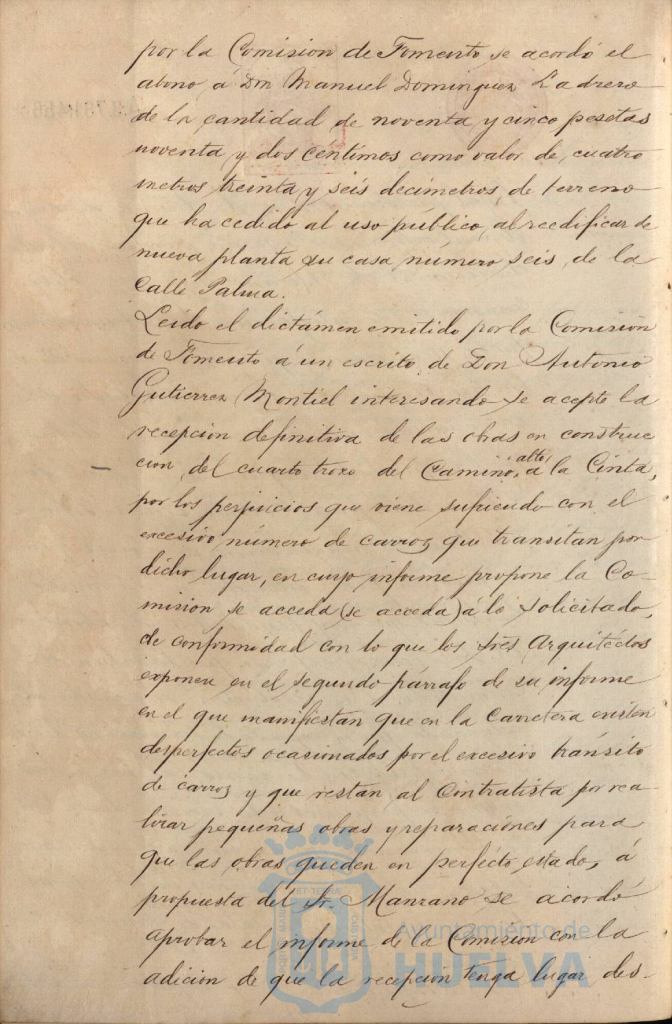 por la Comision de Fomento se acordó el
abono á Don Manuel Dominguez Ladrero
de la cantidad de noventa y cinco pesetas
noventa y dos centimos como valor de cuatro
metros treinta y seis decimetros de terreno
que ha cedido al uso público, al reedificar de
nueva planta su casa número seis de la
Calle Palma.
Leido el dictámen emitido por la Comision
de Fomento á un escrito de Don Antonio
Gutierrez Montiel interesando se acepte la
recepcion definitiva de las obras en construc
cion del cuarto trozo del Camino alto á la Cinta,
por los perjuicios que viene sufriendo con el
excesivo número de carros que transitan por
dicho lugar, en cuyo informe propone la Co-
mision se acceda (se acceda) á lo solicitado,
de conformidad con lo que los tres Arquitectos
exponen en el segundo párrafo de su informe
en el que manifiestan que en la Carretera existen
desperfectos ocasionados por el excesivo tránsito
de carros y que restan al Contratista por rea-
lizar pequeñas obras y reparaciones para
que las obras queden en perfecto estado, á
propuesta del Sr. Manzano se acordó
aprobar el informe de la Comision con la
adicion de que la recepcion tenga lugar des-
Ayuntamiento de
HUELVA